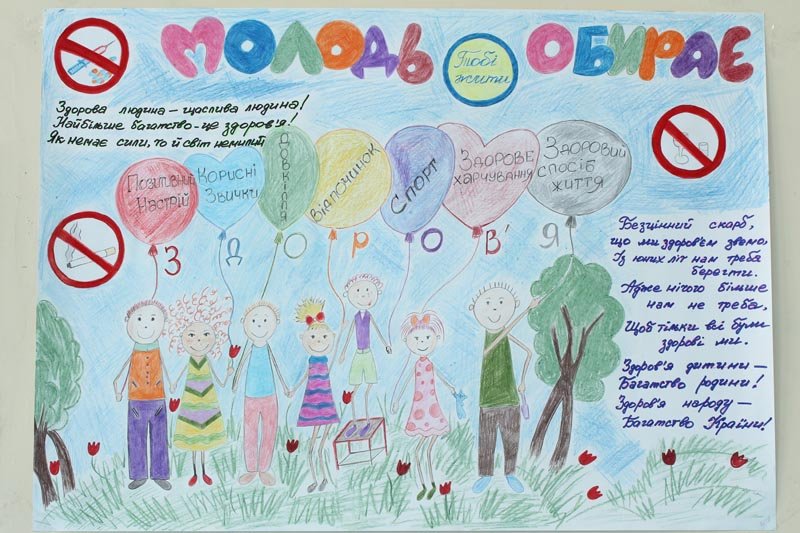 МОЛОДЬ ОБИРАЄ
Тобі
жити
Здорова людина – щаслива людина!
Найбільше багатство – це здоров'я!
Як немає сили, то й світ немилий
Позитивний
Настрій
Корисні
Звички
Довкілля
Відпочинок
Спорт
Здорове
харчування
Здоровий
спосіб
життя
ЗДОРОВ'Я
Безцінний скарб,
що ми здоров'ям звемо,
Із юних літ нам треба
берегти.
Адже нічого більше
нам не треба,
Щоб тільки всі були
здорові ми.
Здоров'я дитини –
Багатство родини!
Здоров'я народу –
Багатство Країни!